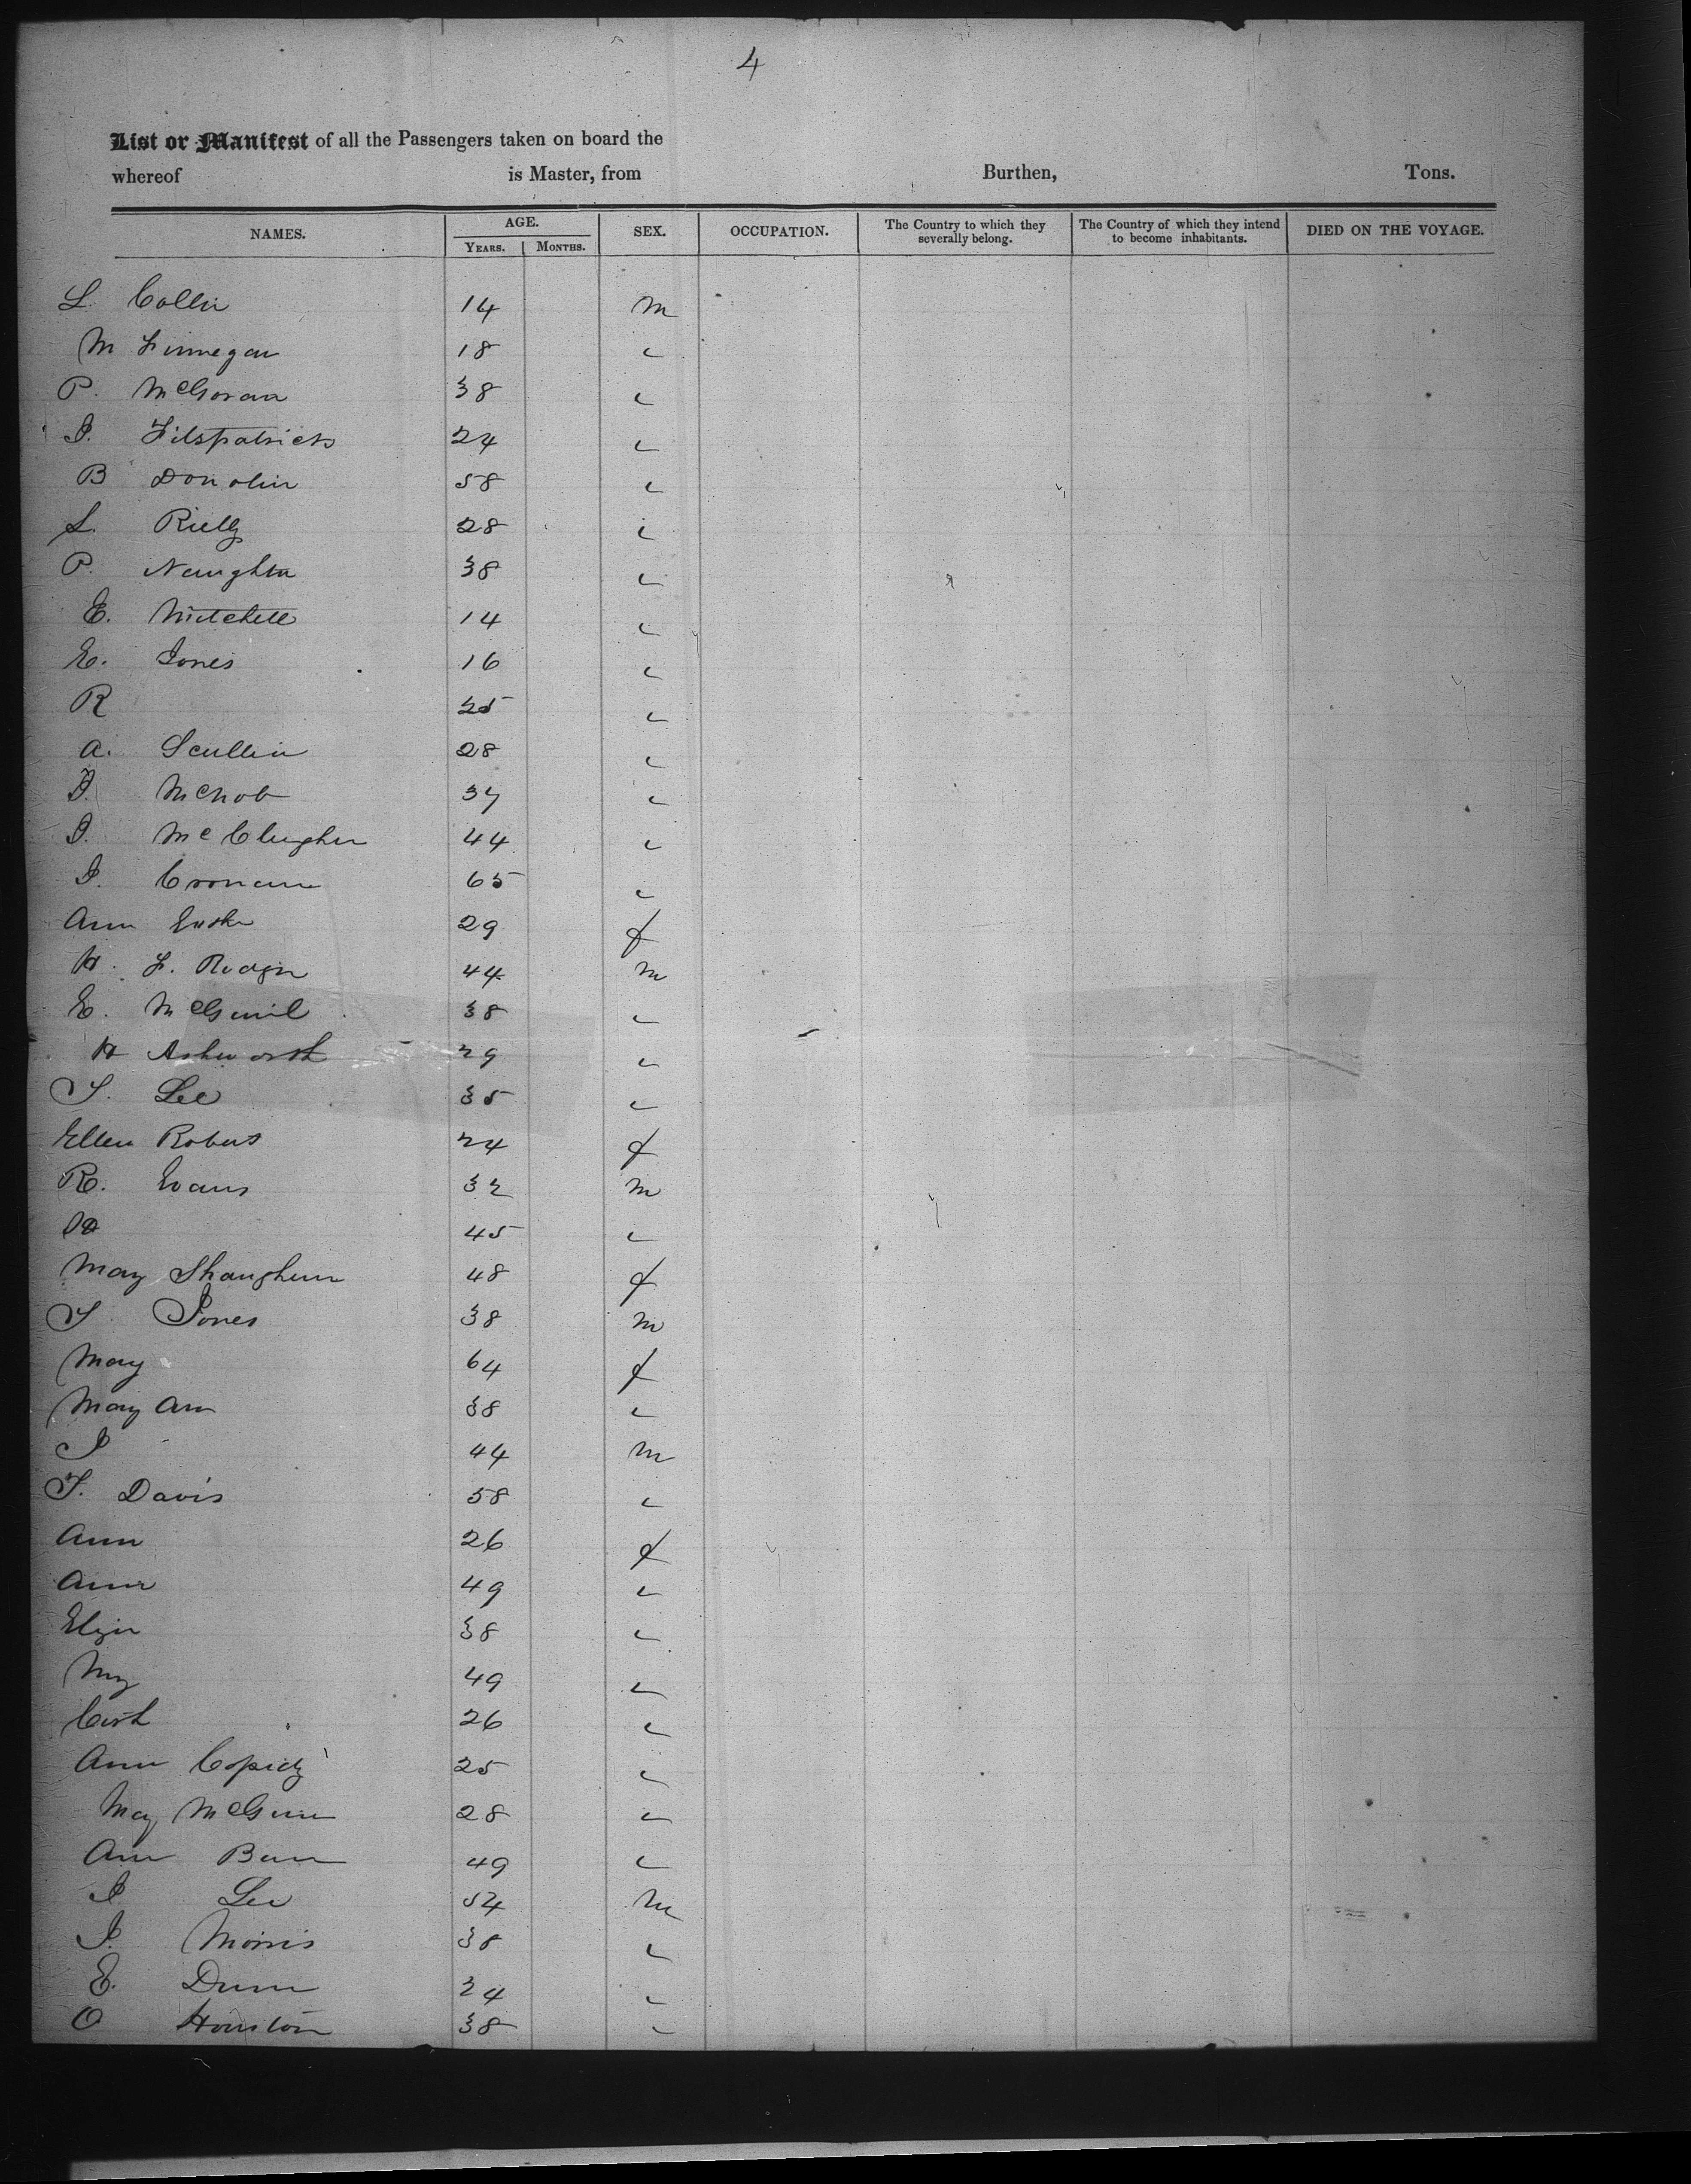 4
List or Manifest of all the Passengers taken on board the
whereof is Master, from Burthen, Tons.
NAMES. AGE. SEX. OCCUPATION. The Country to which they severally belong. The Country of which they intend to become inhabitants. DIED ON THE VOYAGE.
YEARS. MONTHS.
L. Collin 14 m
M Finnegan 18 "
P. McGovan 38 "
J. Fitspatrick 24 "
B Donolin 58 "
L. Rielly 28 "
P. Naughton 38 "
E. Mitchell 14 "
E. Jones 16 "
R 25 "
A. Scullin 28 "
J. McNob 37 "
J. McClugher 44 "
J. Cronan 65 "
Ann 29 f
H. F. 44 m
E. 38 "
H Ashworth 29 "
T. Lee 35 "
Ellen Roberts 24 f
R. Evans 32 m
45 "
Mary 48 f
T Jones 38 m
Mary 64 f
Mary Ann 38 "
J 44 m
T. Davis 58 "
Ann 26 f
Ann 49 "
Eliza 38 "
My 49 "
Cath 26 "
Ann 25 "
May McGinn 28 "
Ann 49 "
J Lee 54 m
J. Morris 38 "
E. Dunn 24 "
O Houston 38 "